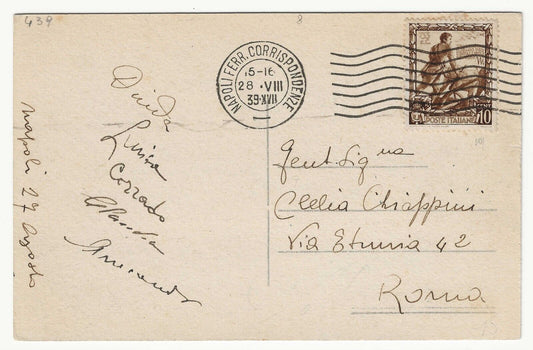 439
8
NAPOLI FERR. CORRISPONDENZE
15-16
28 · VIII
39·XVII
POSTE ITALIANE
10
Guida
Luisa
Corrado
Claudia
Armando
Napoli 27 Agosto
Gent. Sig.na
Clelia Chiappini
Via Etruria 42
Roma